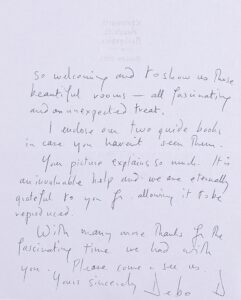 so welcoming and to show us those
beautiful rooms — all fascinating
and an unexpected treat.
I enclose our two guide books
in case you haven't seen them.
Your picture explains so much. It is
an invaluable help and we are eternally
grateful to you for allowing it to be
reproduced.
With many more thanks for the
fascinating time we had with
you. Please come & see us.
Yours sincerely Debo D